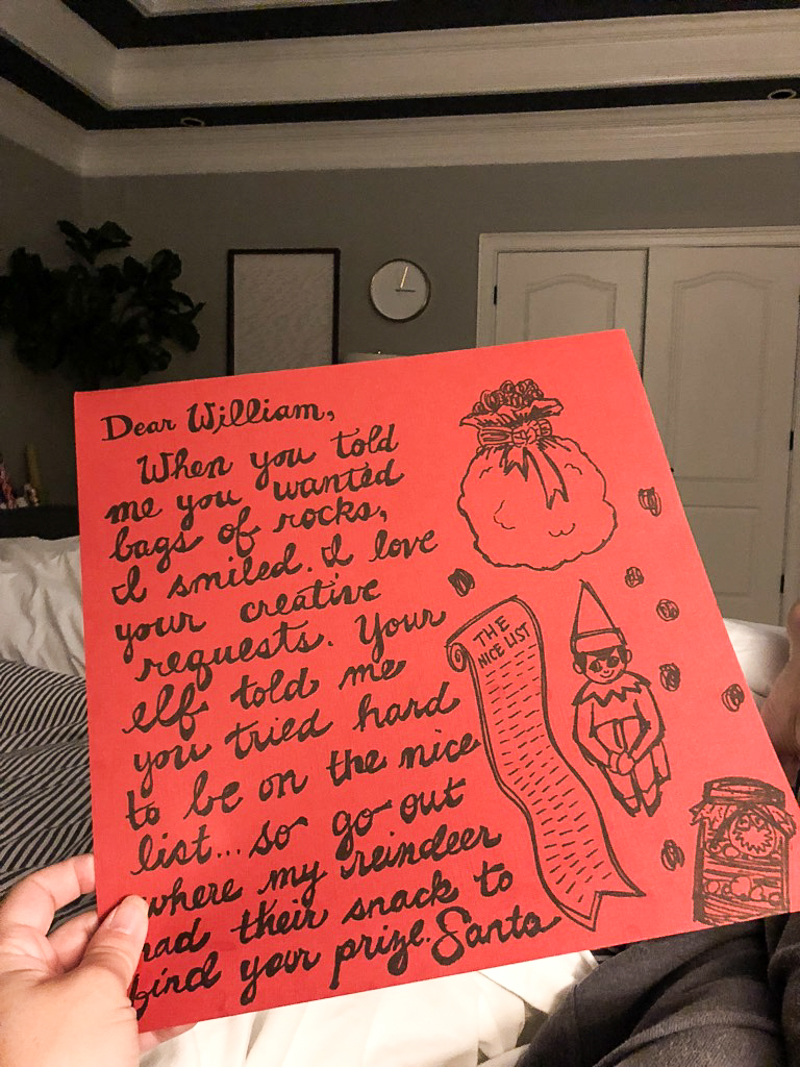 Dear William,
When you told
me you wanted
bags of rocks,
I smiled. I love
your creative
requests. Your
elf told me
you tried hard
to be on the nice
list... so go out
where my reindeer
had their snack to
find your prize. Santa
THE
NICE LIST